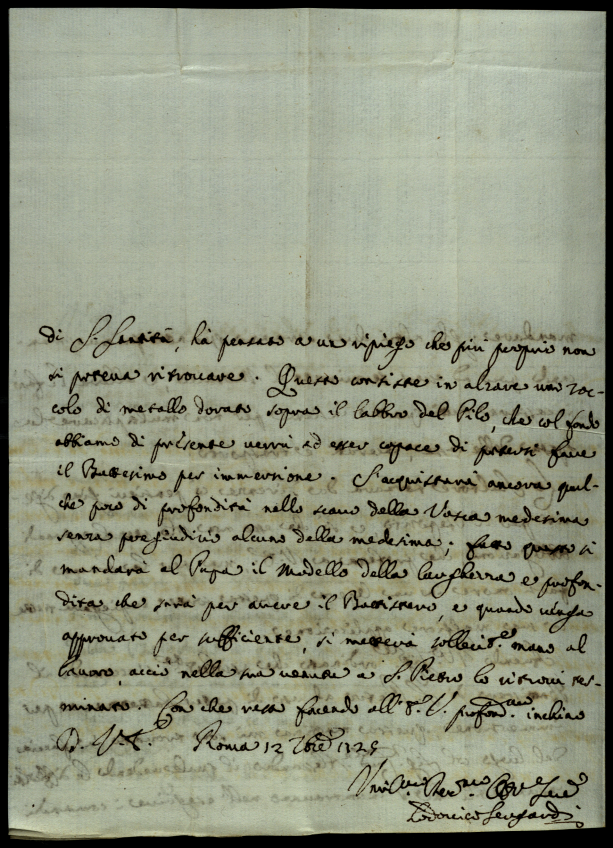 di S. Santità, hà pensato a un ripiego che più proprio non
si poteva ritrovare. Questo consiste in alzare uno zoc-
colo di metallo dorato sopra il labbro del Pilo, che col fondo
abbiamo di presente verrà ad esser capace di potersi fare
il Battesimo per immersione. S'acquistarà ancora qual-
che poco di profondità nello scavo della Vasca medesima
senza pregiudizio alcuno della medesima; fatto questo si
mandarà al Papa il Modello della larghezza e profon-
dità che sarà per avere il Battistero, e quando venga
approvato per sufficiente, si metterà sollecit.e mano al
lavoro, acciò nella sua venuta a S. Pietro lo ritrovi ter-
minato. Con che resto facendo all' V. profond. inchino
D. V. E. Roma 12 1725
Lodovico Sergardi